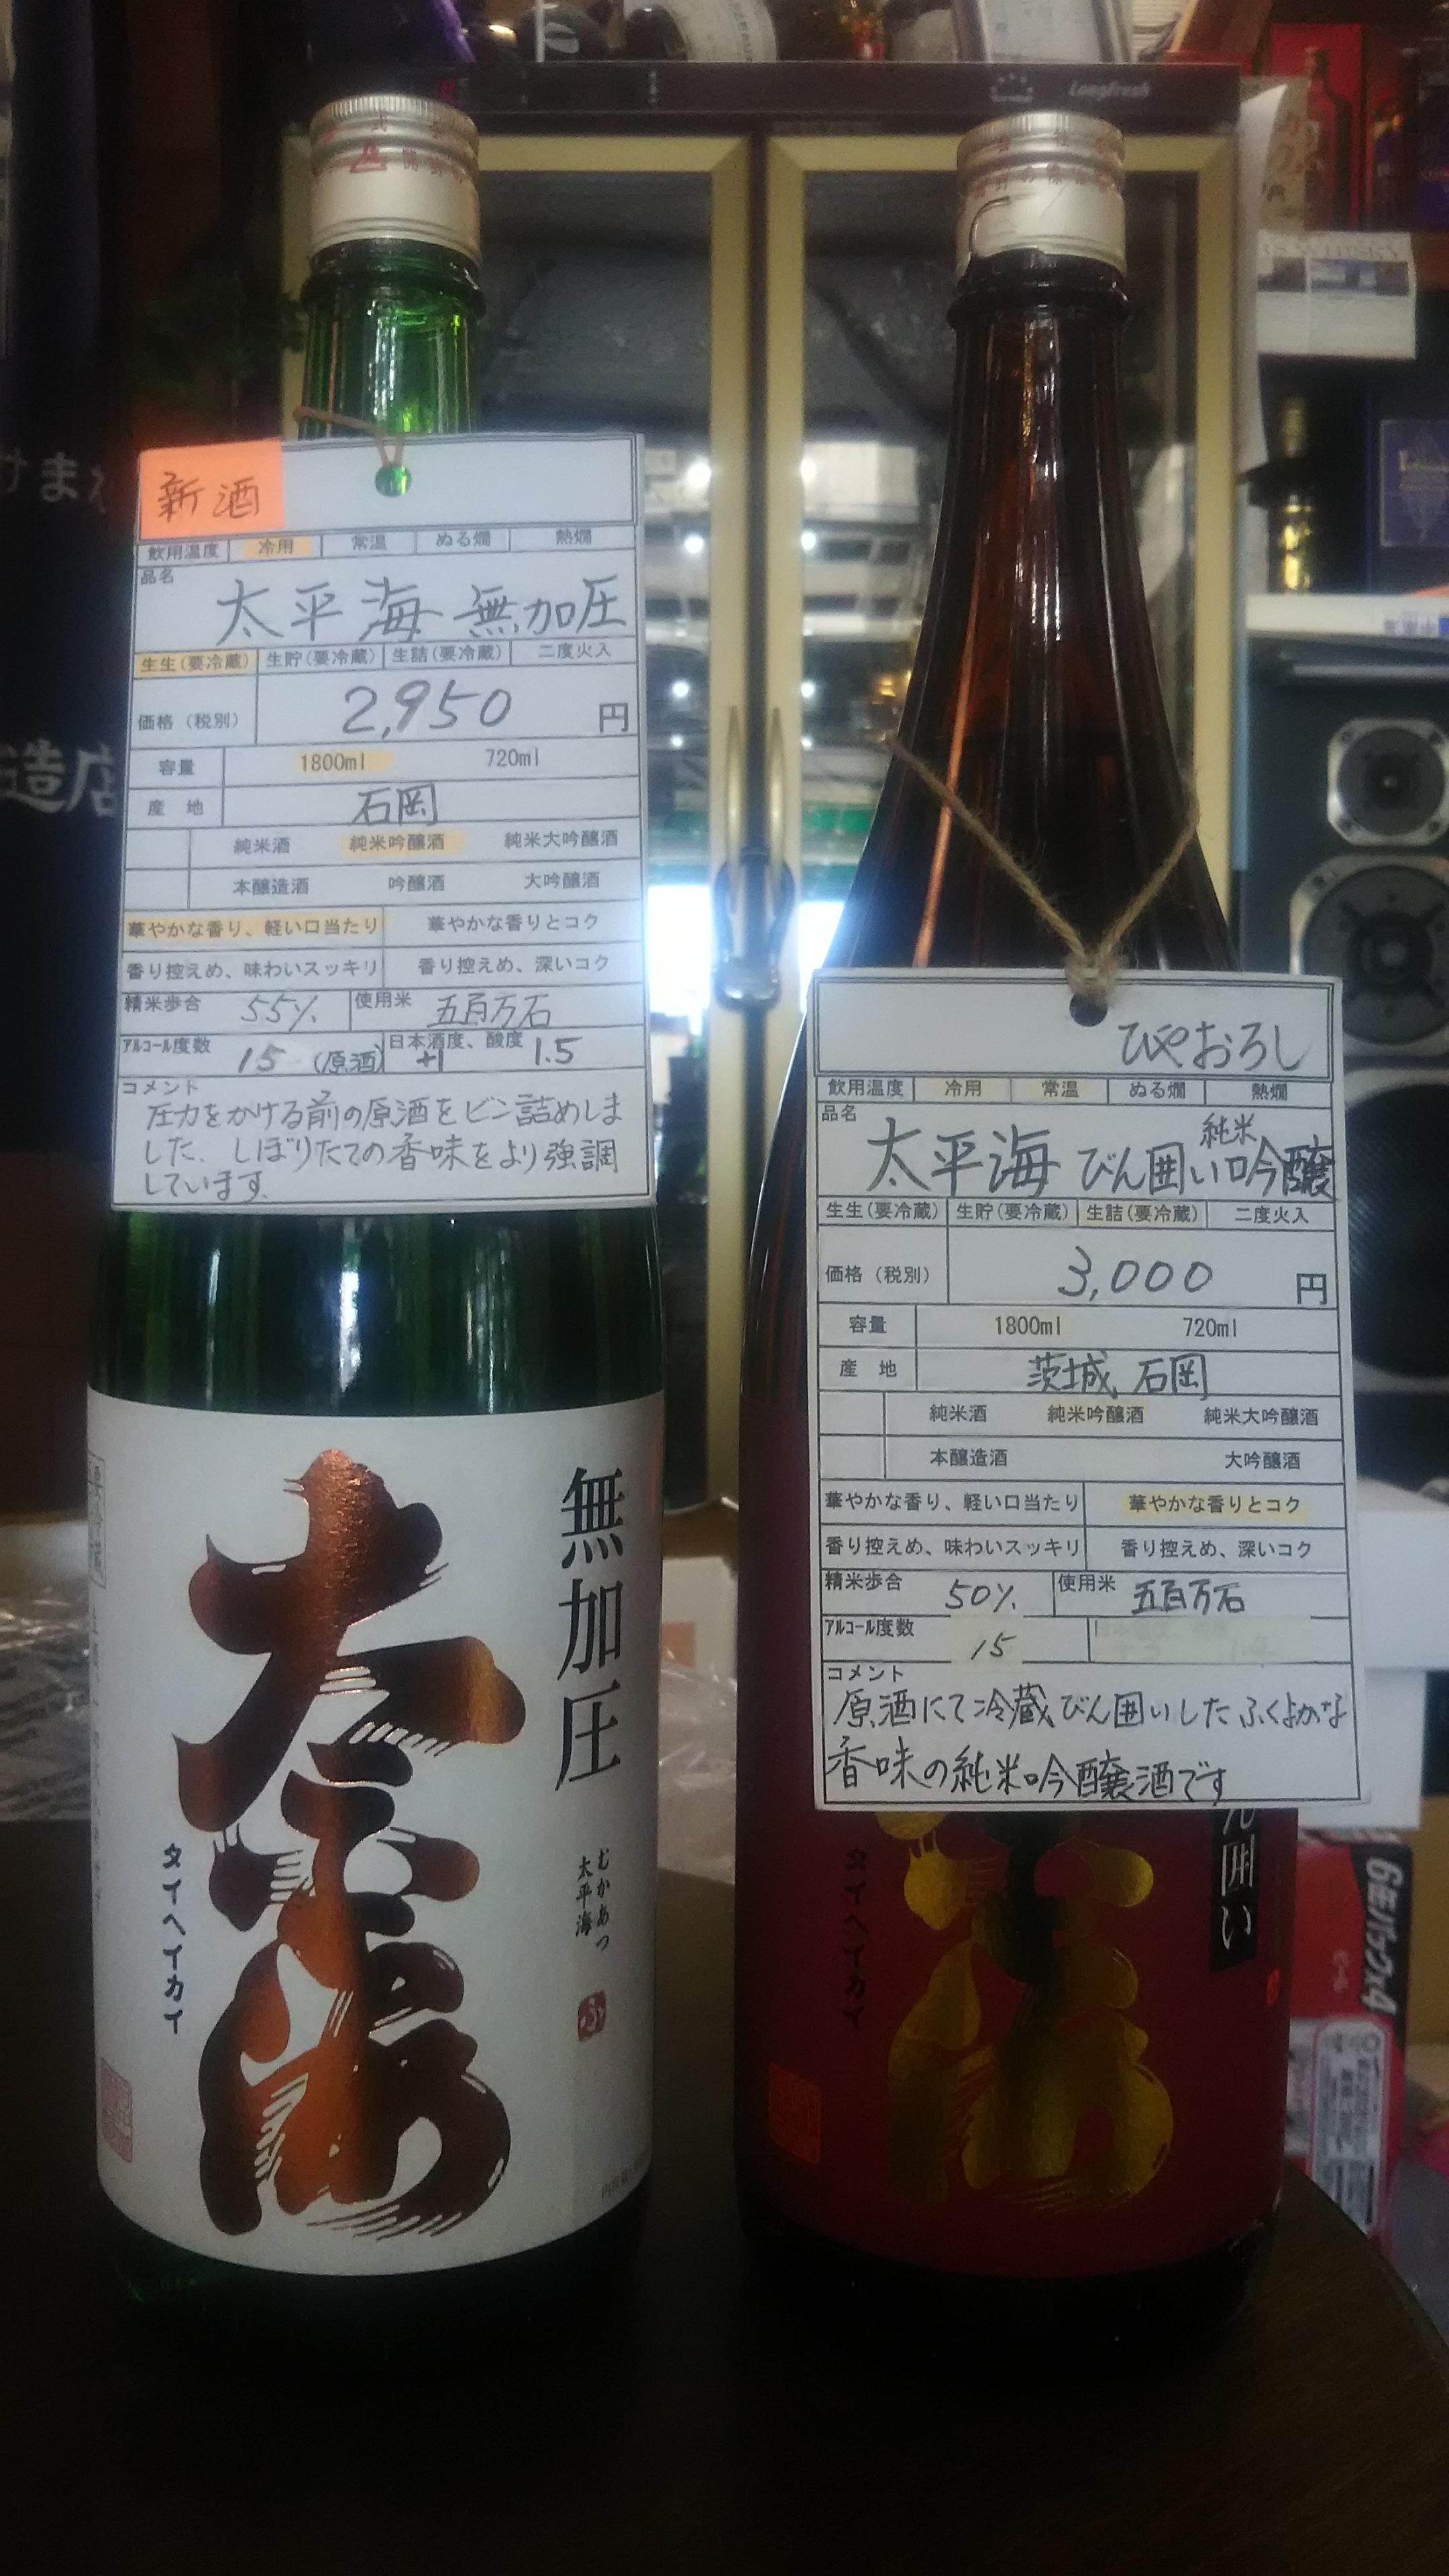 Longfresh
けまえ
造店
新酒
飲用温度 冷用 常温 ぬる燗 熱燗
品名
太平海 無加圧
生生(要冷蔵) 生貯(要冷蔵) 生詰(要冷蔵) 二度火入
価格(税別) 2,950 円
容量 1800ml 720ml
産地 石岡
純米酒 純米吟醸酒 純米大吟醸酒
本醸造酒 吟醸酒 大吟醸酒
華やかな香り、軽い口当たり 華やかな香りとコク
香り控えめ、味わいスッキリ 香り控えめ、深いコク
精米歩合 55% 使用米 五百万石
アルコール度数 15 (原酒) 日本酒度、酸度 +1 1.5
コメント
圧力をかける前の原酒をビン詰めしま
した。しぼりたての香味をより強調
しています。
無加圧
太平海
タイヘイカイ
むかあつ
太平海
ひやおろし
飲用温度 冷用 常温 ぬる燗 熱燗
品名
太平海 びん囲い純米吟醸
生生(要冷蔵) 生貯(要冷蔵) 生詰(要冷蔵) 二度火入
価格(税別) 3,000 円
容量 1800ml 720ml
産地 茨城、石岡
純米酒 純米吟醸酒 純米大吟醸酒
本醸造酒 大吟醸酒
華やかな香り、軽い口当たり 華やかな香りとコク
香り控えめ、味わいスッキリ 香り控えめ、深いコク
精米歩合 50% 使用米 五百万石
アルコール度数 15
コメント
原酒にて冷蔵びん囲いしたふくよかな
香味の純米吟醸酒です
ん囲い
タイヘイカイ
6缶パック×4